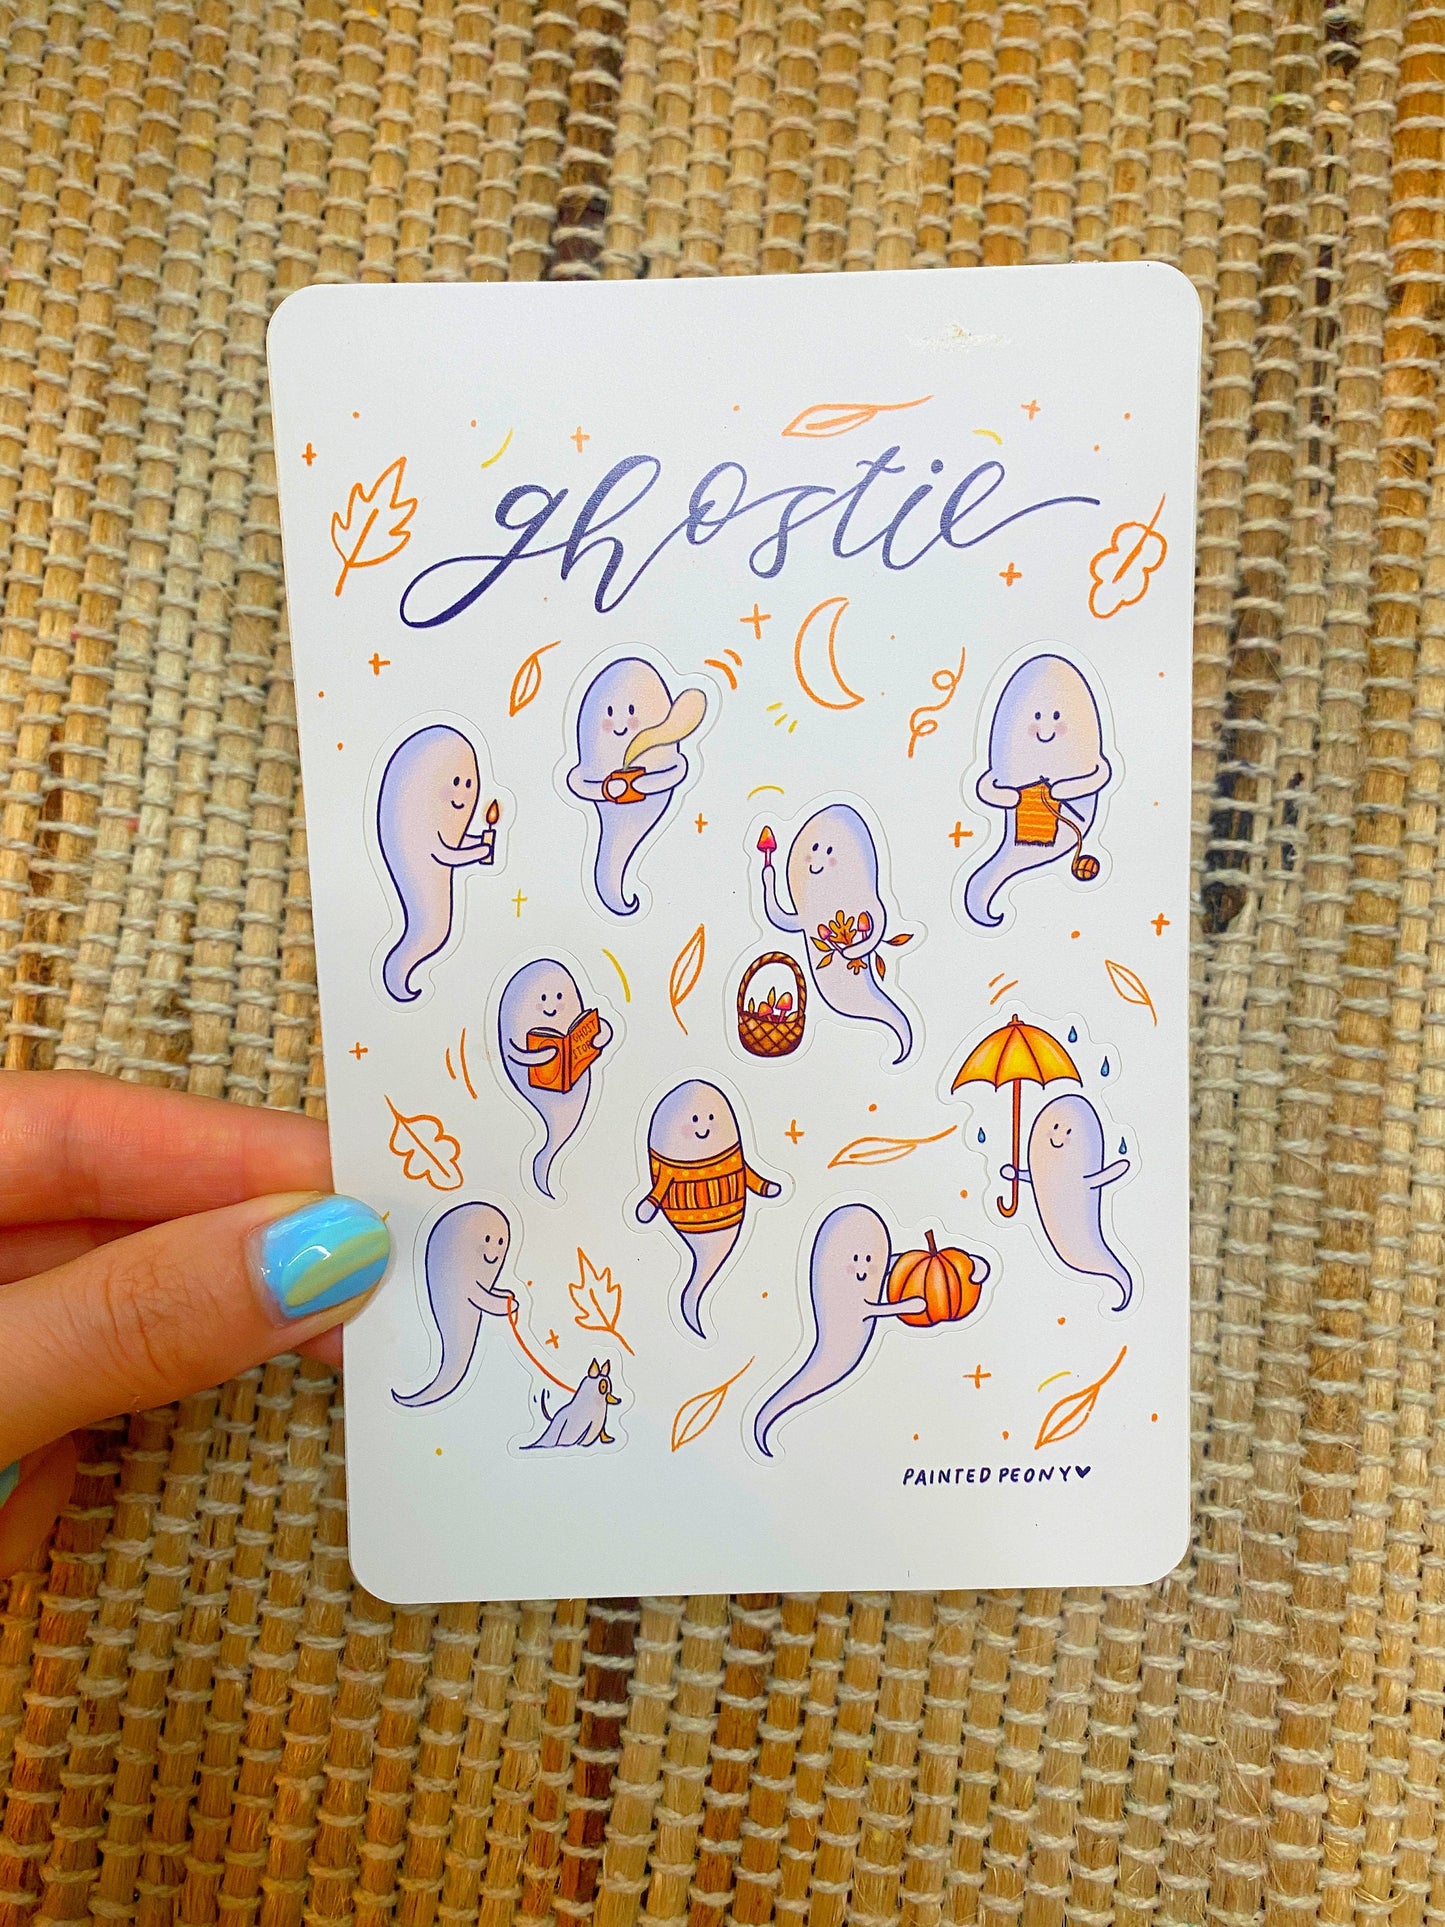 ghostie
GHOST
STOR
PAINTED PEONY